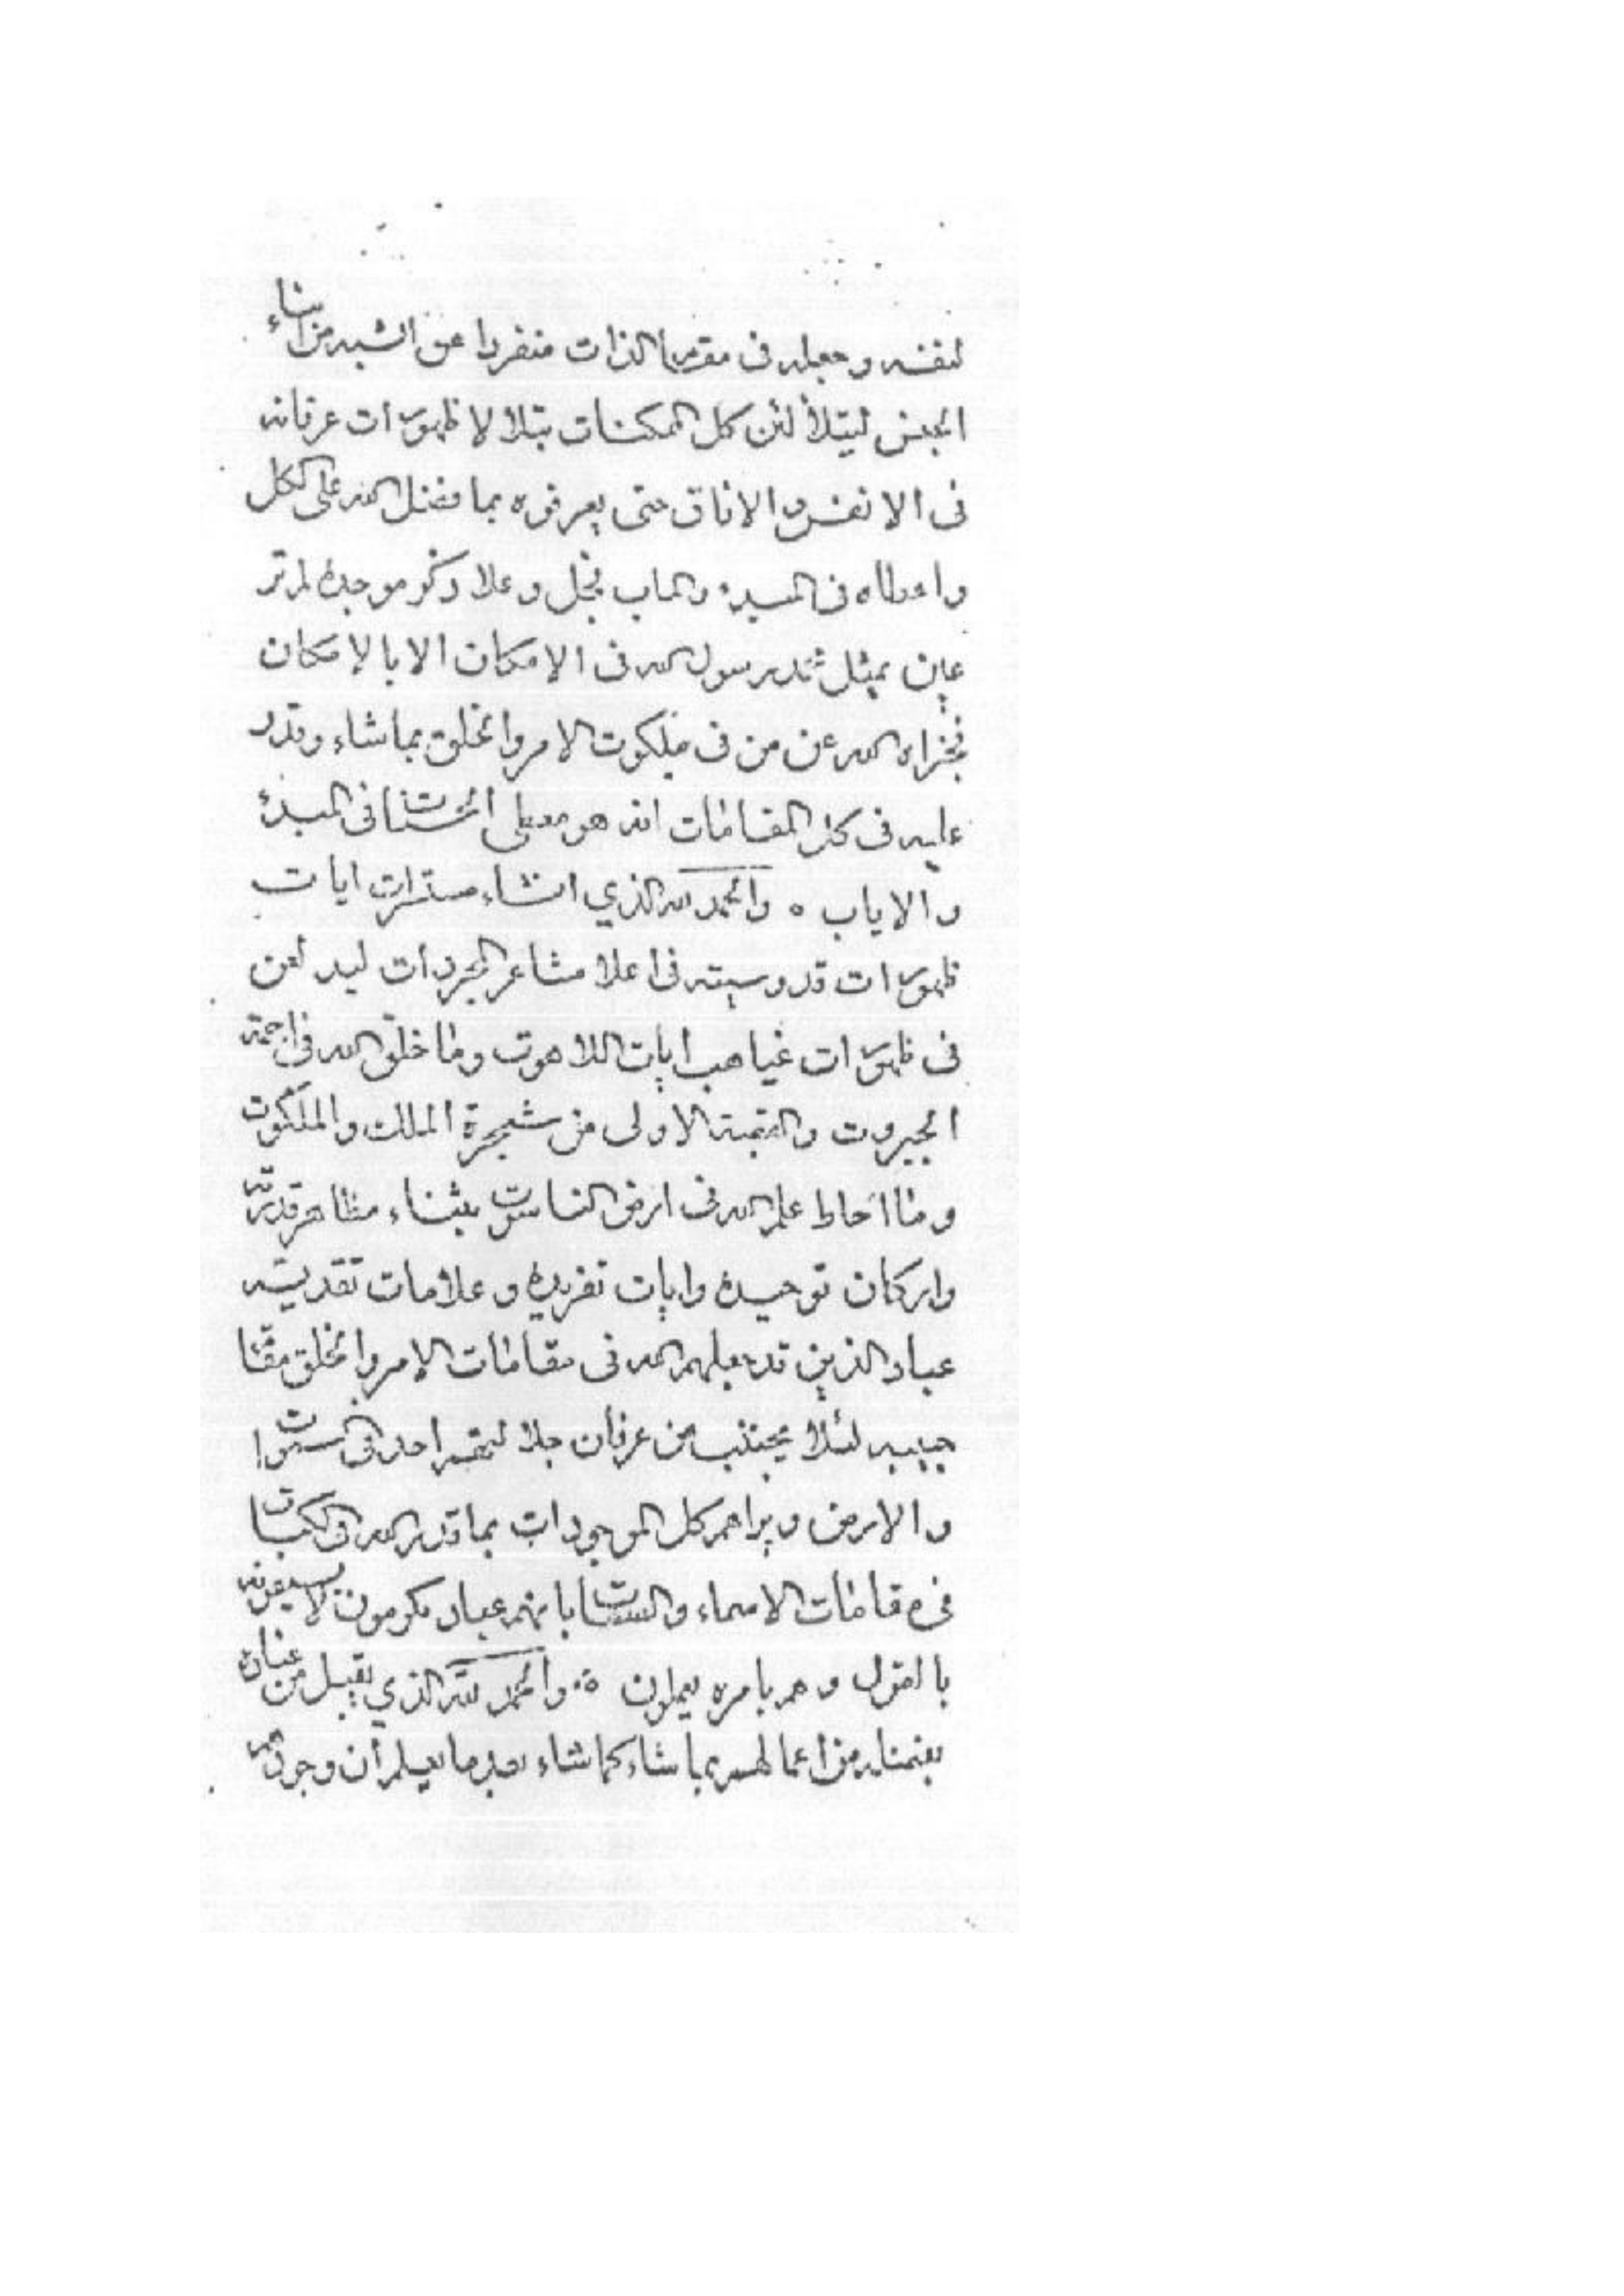 لنفسه وجعله فى مقرمقام الذات منفردا عن الشبه من ابناء
الجنس ليتلألئن كل الممكنات بتلألا ظهورات عرفانه
فى الانفس والافاق حتى يعرفوه بما فضل الله على الكل
واعطاه فى المبدء والماب فجل وعلا ذكر موجده لم تر
عين بمثل محمد رسول الله فى الامكان الا بالامكان
فجزاه الله عن من فى ملكوت الامر والخلق بما شاء وقدر
عليه فى كل المقامات انه هو معطى الحسنات فى المبدء
والاياب ه والحمد لله الذي انشاء مستسرات ايات
ظهورات قدوسيته فى اعلا مشاعر المجردات ليدلعن
فى ظهورات غياهب ايات اللاهوت وما خلق الله فى اجمة
الجبروت والقمة الاولى من شجرة الملك والملكوت
وما احاط علم الله فى ارض الناسوت بثناء مظاهر قدرته
واركان توحيده وايات تفريده وعلامات تقديسه
عباد الذين قد جعلهم الله فى مقامات الامر والخلق مقام
حبيبه لئلا يحتجب من عرفان جلا ليتهم احد فى السموات
والارض ويراهم كل الموجودات بما قدر الله فى الكتاب
فى مقامات الاسماء والصفات بانهم عباد مكرمون لا يسبقونه
بالقول وهم بامره يعملون ه والحمد لله الذي يقبل من عباده
بفضله من اعمالهم بما شاء كما شاء بعد ما يعلم أن وجودهم